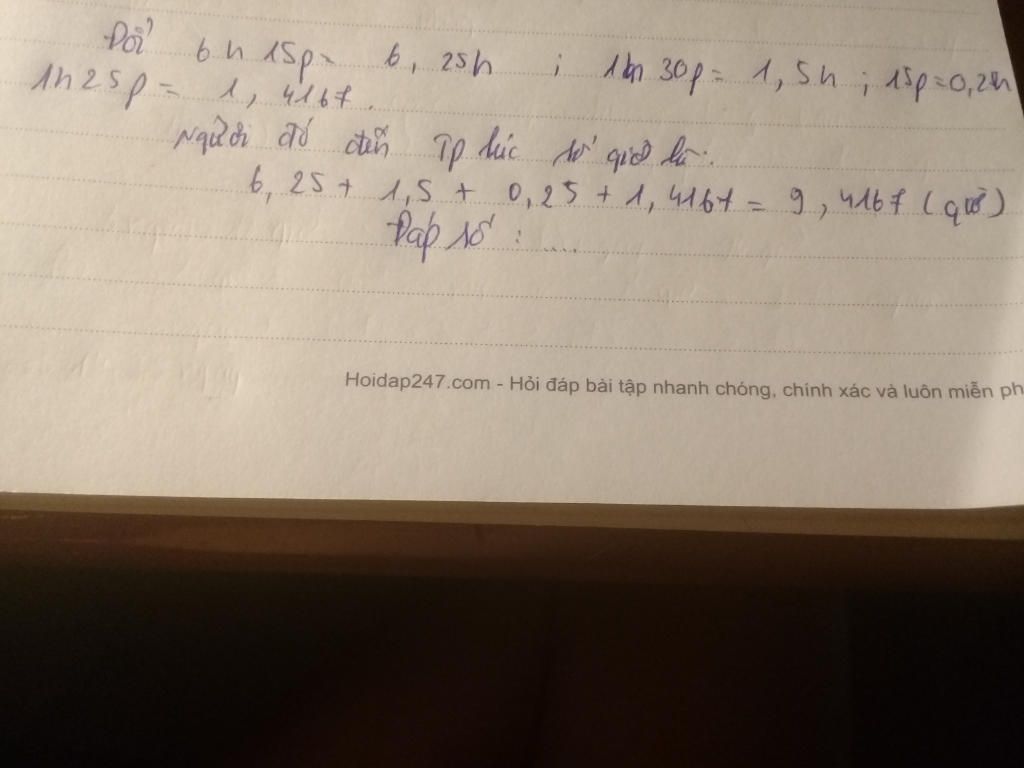 Đổi 6h 15p = 6,25h ; 1h 30p = 1,5h ; 15p = 0,25h
1h 25p = 1,4167.
Người đó đến Tp lúc số giờ là:
6,25 + 1,5 + 0,25 + 1,4167 = 9,4167 (giờ)
Đáp số : ....
Hoidap247.com - Hỏi đáp bài tập nhanh chóng, chính xác và luôn miễn ph